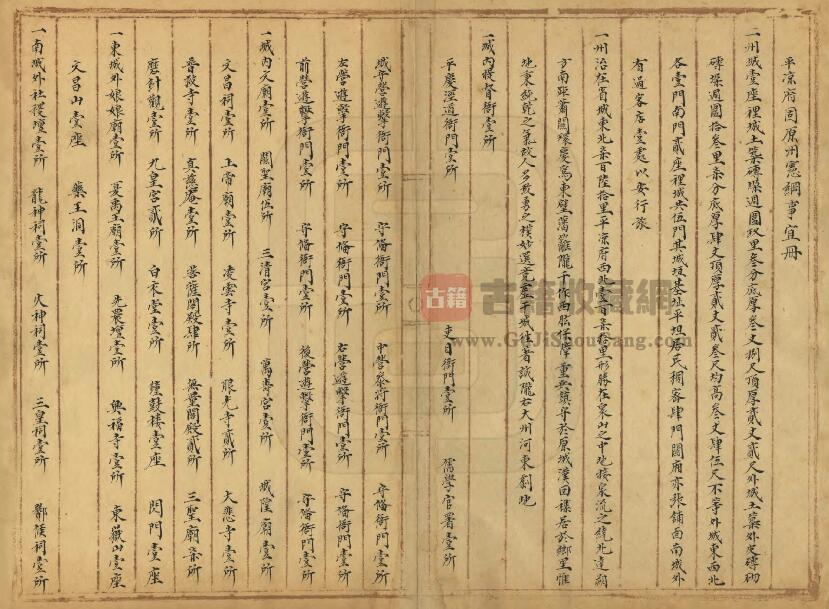 平涼府固原州憲綱事宜冊
一州城壹座裡城土築磚垜週圍玖里叁分底厚叁丈捌尺頂厚貳丈貳尺外城土築外皮磚砌
磚垜週圍拾叁里柒分底厚肆丈頂厚貳丈貳叁尺均高叁丈肆伍尺不等外城東西北
各壹門南門貳座裡城共伍門其城垣基址平坦居民稠密肆門關廂亦張鋪面南城外
有過客店壹處以安行旅
一州治在省城東北柒百陸拾里平涼府西北壹百柒拾里形勝在泉山之中地接泉流之繞北達朔
方南距蕭關環慶為東壁藩籬隴干作西陲保障重兵鎮守於原城漢回雜居於鄉里惟
地秉純乾之氣故人多敦勇之樸妙選竟干城往者誠隴右大州河東劇地
一城內提督衙壹所
平慶涇道衙門壹所 吏目衙門壹所 儒學官署壹所
城守營遊擊衙門壹所 守備衙門壹所 中營叅將衙門壹所 守備衙門壹所
左營遊擊衙門壹所 守備衙門壹所 右營遊擊衙門壹所 守備衙門壹所
前營遊擊衙門壹所 守備衙門壹所 後營遊擊衙門壹所 守備衙門壹所
一城內文廟壹所 關聖廟伍所 三清宮壹所 萬壽宮壹所 城隍廟壹所
文昌祠壹所 玉帝廟壹所 凌雲寺壹所 眼光寺貳所 大悲寺壹所
普救寺壹所 真慈庵壹所 菩薩閣殿肆所 無量閣殿貳所 三聖廟柒所
磨針觀壹所 九皇宮貳所 白衣堂壹所 鐘鼓樓壹座 閃門壹座
一東城外娘娘廟壹所 夏禹王廟壹所 先農壇壹所 興福寺壹所 東嶽山壹座
文昌山壹座 藥王洞壹所
一南城外社稷壇壹所 龍神祠壹所 火神祠壹所 三皇祠壹所 酇侯祠壹所
古籍 古籍收藏網
www.GuJiShouCang.com